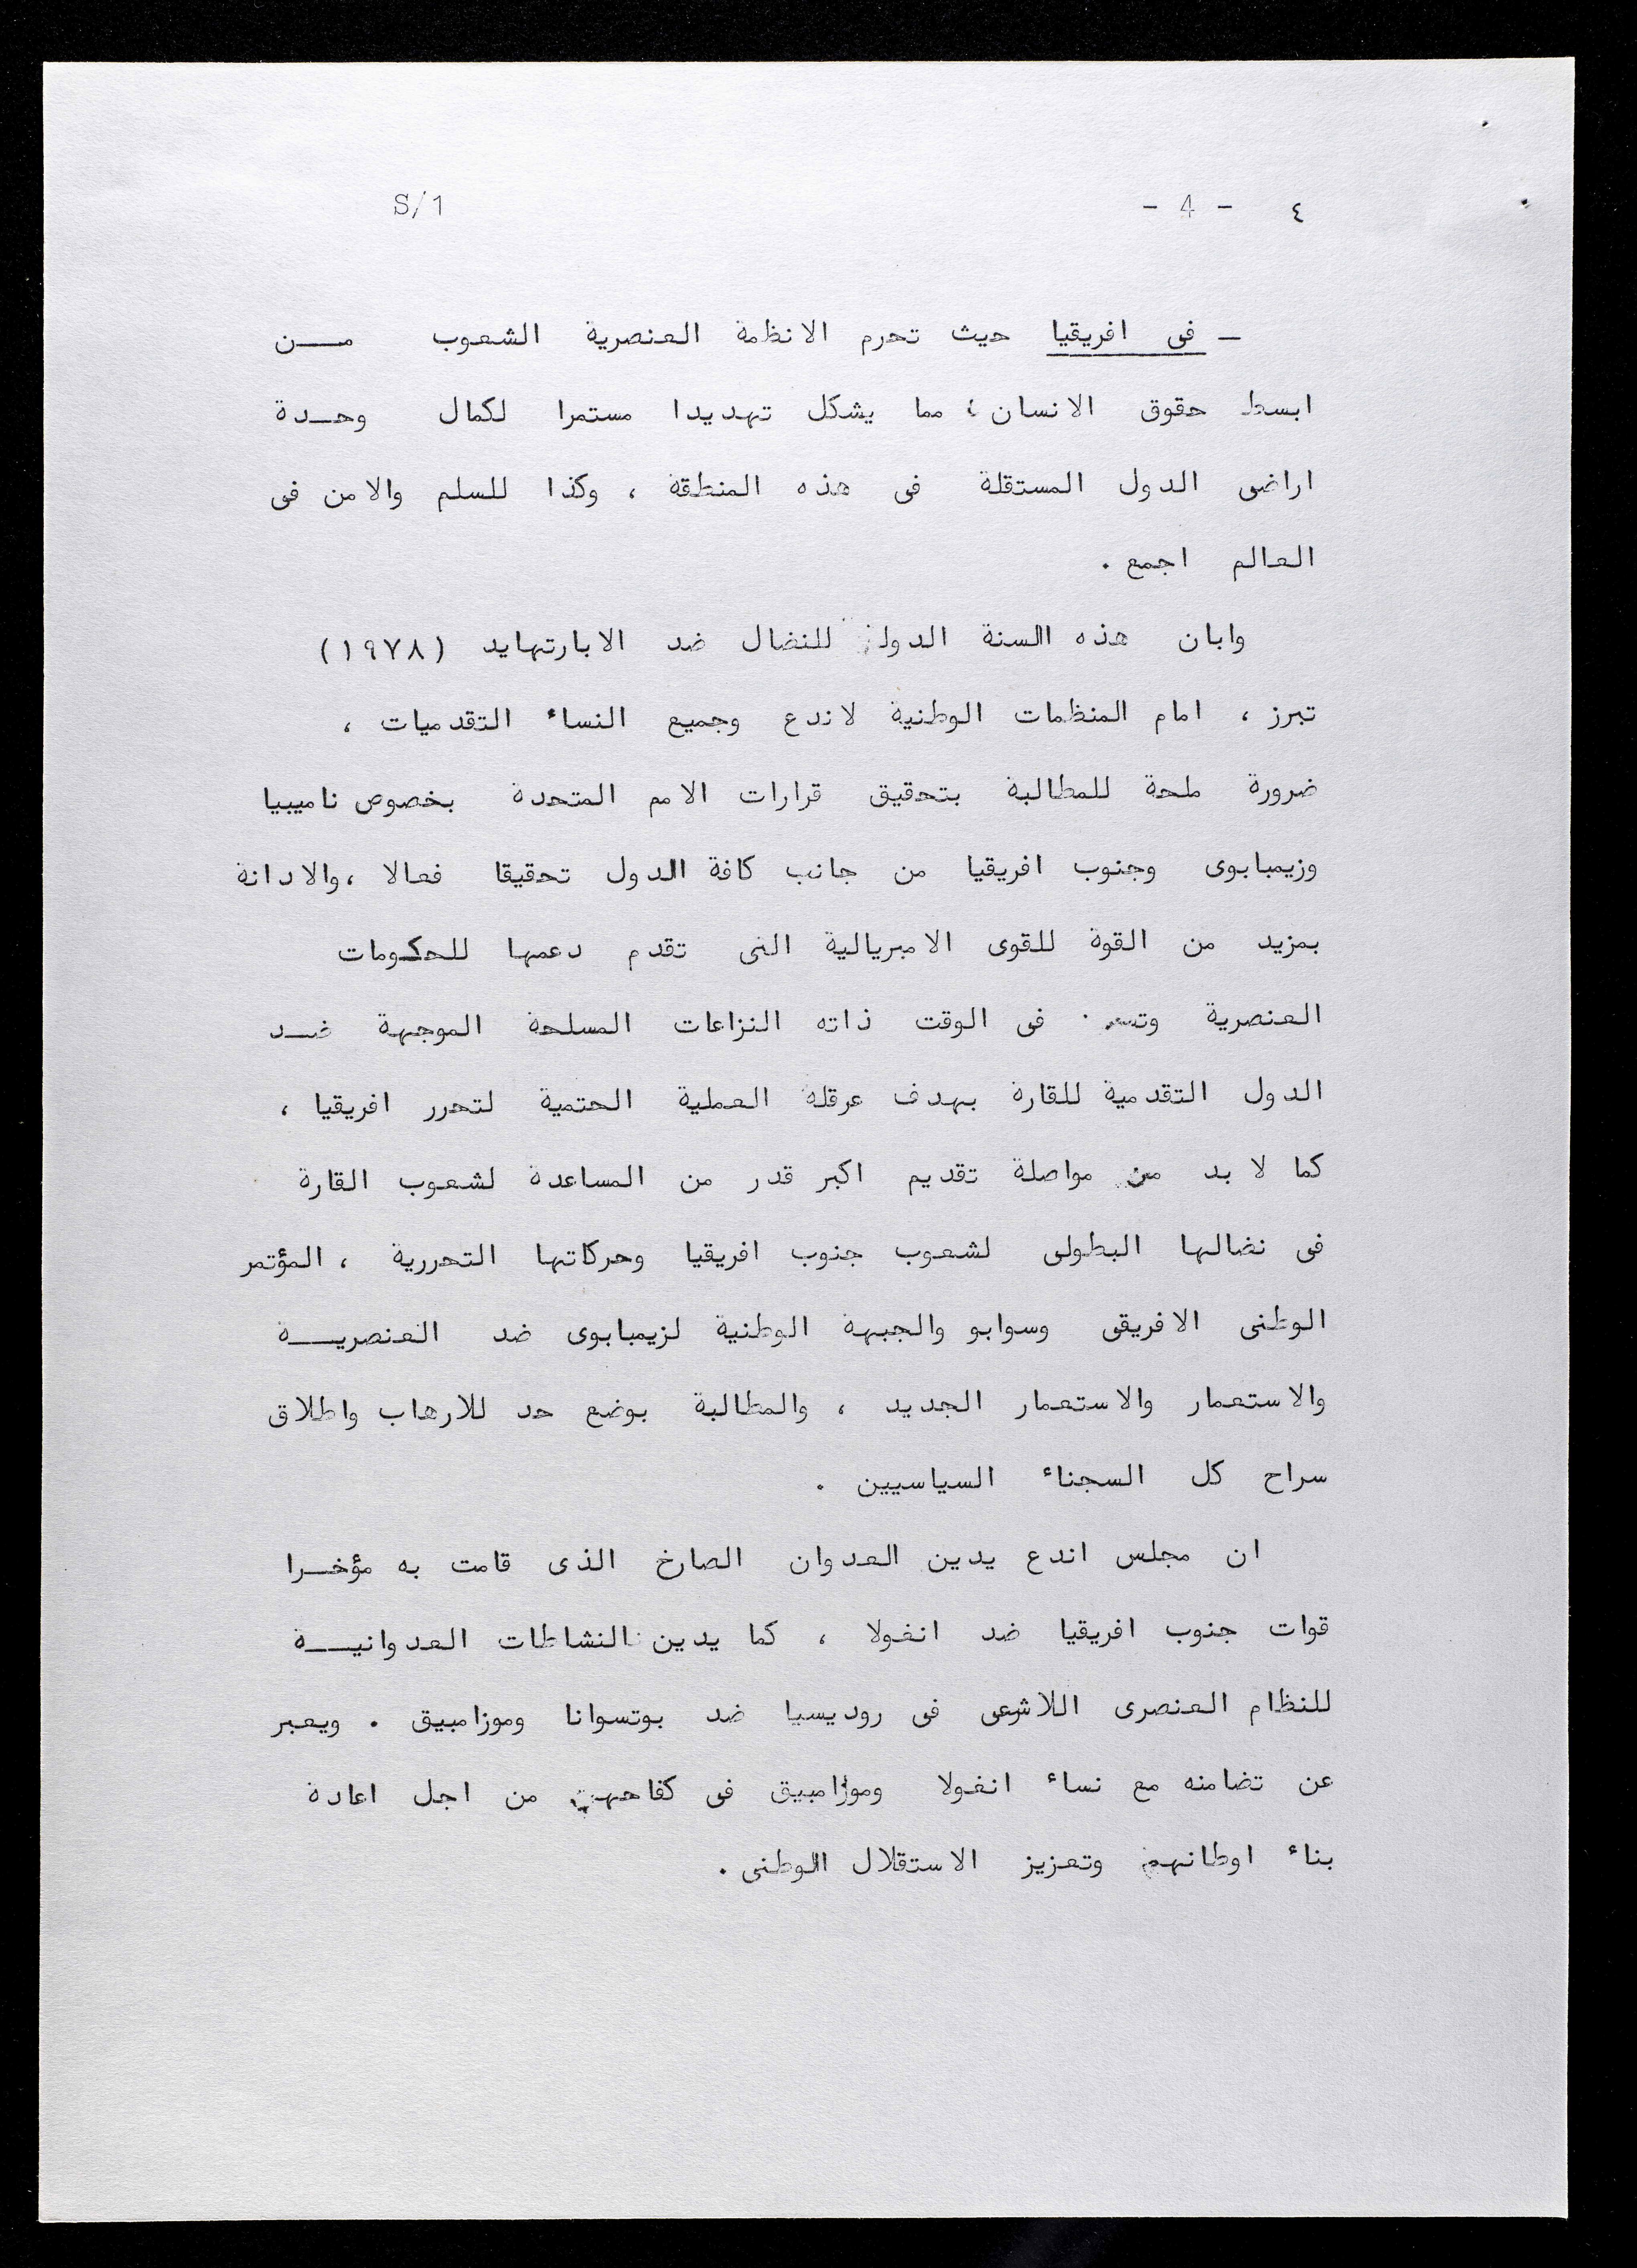 ٤ - 4 - S/1
ـ فى افريقيا حيث تحرم الانظمة العنصرية الشعوب مــن
ابسط حقوق الانسان ؛ مما يشكل تهديدا مستمرا لكمال وحــدة
اراضى الدول المستقلة فى هذه المنطقة ، وكذا للسلم والامن فى
العالم اجمع .
وابان هذه السنة للنضال ضد الابارتهايد (١٩٧٨)
تبرز ، امام المنظمات الوطنية لاندع وجميع النساء التقدميات ،
ضرورة ملحة للمطالبة بتحقيق قرارات الامم المتحدة بخصوص ناميبيا
وزيمبابوى وجنوب افريقيا من جانب كافة الدول تحقيقا فعالا ،والادانة
بمزيد من القوة للقوى الامبريالية التى تقدم دعمها للحكومات
العنصرية فى الوقت ذاته النزاعات المسلحة الموجهة ضــد
الدول التقدمية للقارة بهدف عرقلة العملية الحتمية لتحرر افريقيا ،
كما لا بد من مواصلة تقديم اكبر قدر من المساعدة لشعوب القارة
فى نضالها البطولى لشعوب جنوب افريقيا وحركاتها التحررية ، المؤتمر
الوطنى الافريقى وسوابو والجبهة الوطنية لزيمبابوى ضد العنصريــة
والاستعمار والاستعمار الجديد ، والمطالبة بوضع حد للارهاب واطلاق
سراح كل السجناء السياسيين .
ان مجلس اندع يدين العدوان الصارخ الذى قامت به مؤخــرا
قوات جنوب افريقيا ضد انغولا ، كما يدين النشاطات العدوانيــة
للنظام العنصرى اللاشرعى فى روديسيا ضد بوتسوانا وموزامبيق . ويعبر
عن تضامنه مع نساء انغولا وموزامبيق فى كفاحهن من اجل اعادة
بناء اوطانهم وتعزيز الاستقلال الوطنى .